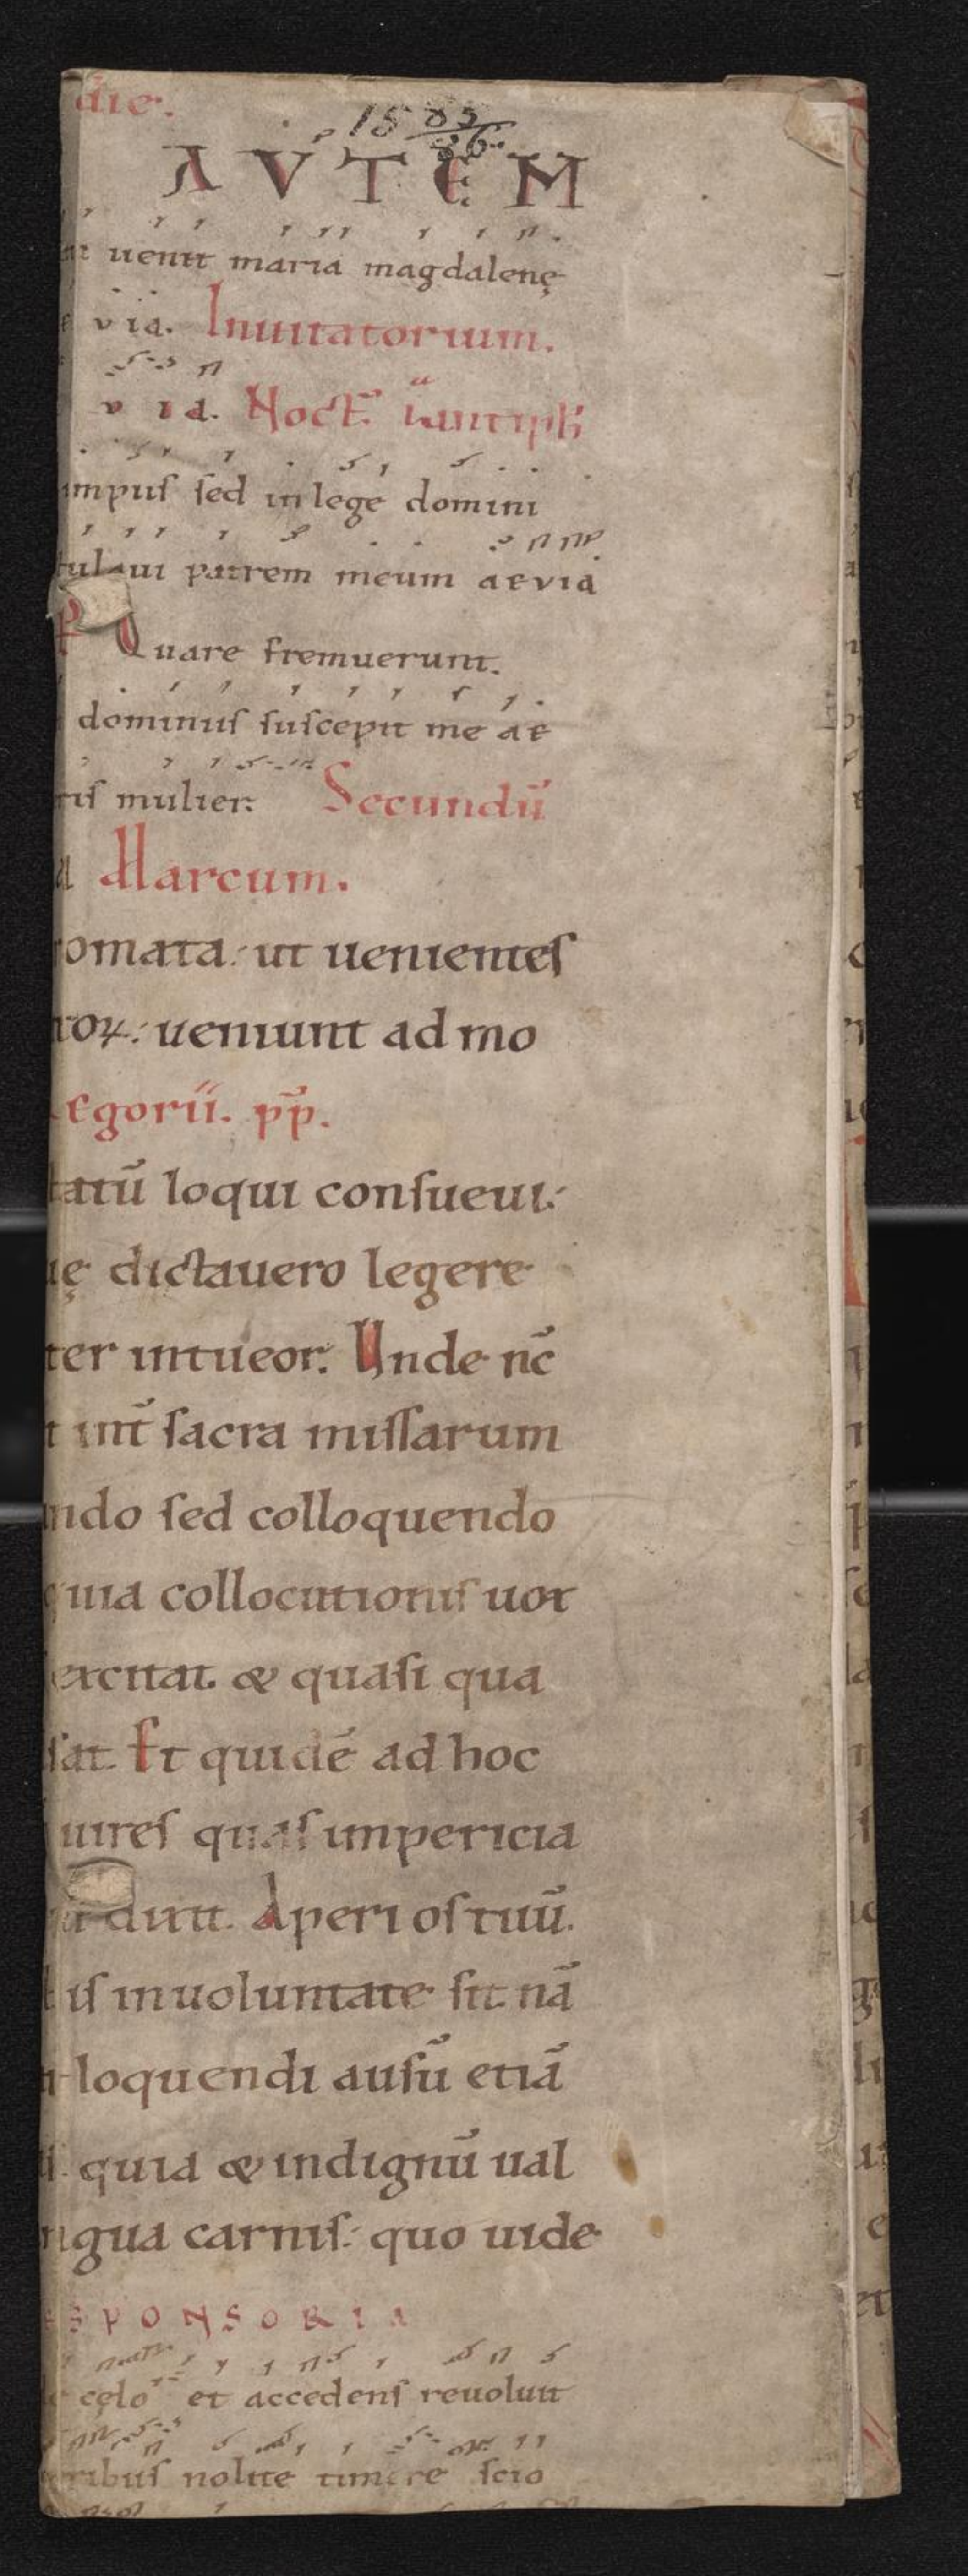 die.
15 85/86.
AVTEM
uenit maria magdalenę
via. Inuitatorium.
v ia. Noct̄. i. antiph̄
impuſ ſed in lege domini
tulaui patrem meum aevia
Quare fremuerunt.
dominuſ ſuſcepit me ae
tiſ mulier. Secundū
Marcum.
romata. ut uenienteſ
roꝝ. ueniunt ad mo
egorii. pp̄.
tatū loqui conſueui.
uę dictauero legere
ter intueor. Unde nc̄
t int̄ ſacra miſſarum
ndo ſed colloquendo
quia collocutioniſ uox
excitat & quaſi qua
ſat. Et quidē ad hoc
uireſ quaſ impericia
dixit. Aperi oſ tuū.
iſ in uoluntate ſit. nā
loquendi auſū etiā
quia & indignū ual
ngua carniſ. quo uide
SPONSORIA
cęlo et accedenſ reuoluit
ribuſ nolite timere ſcio